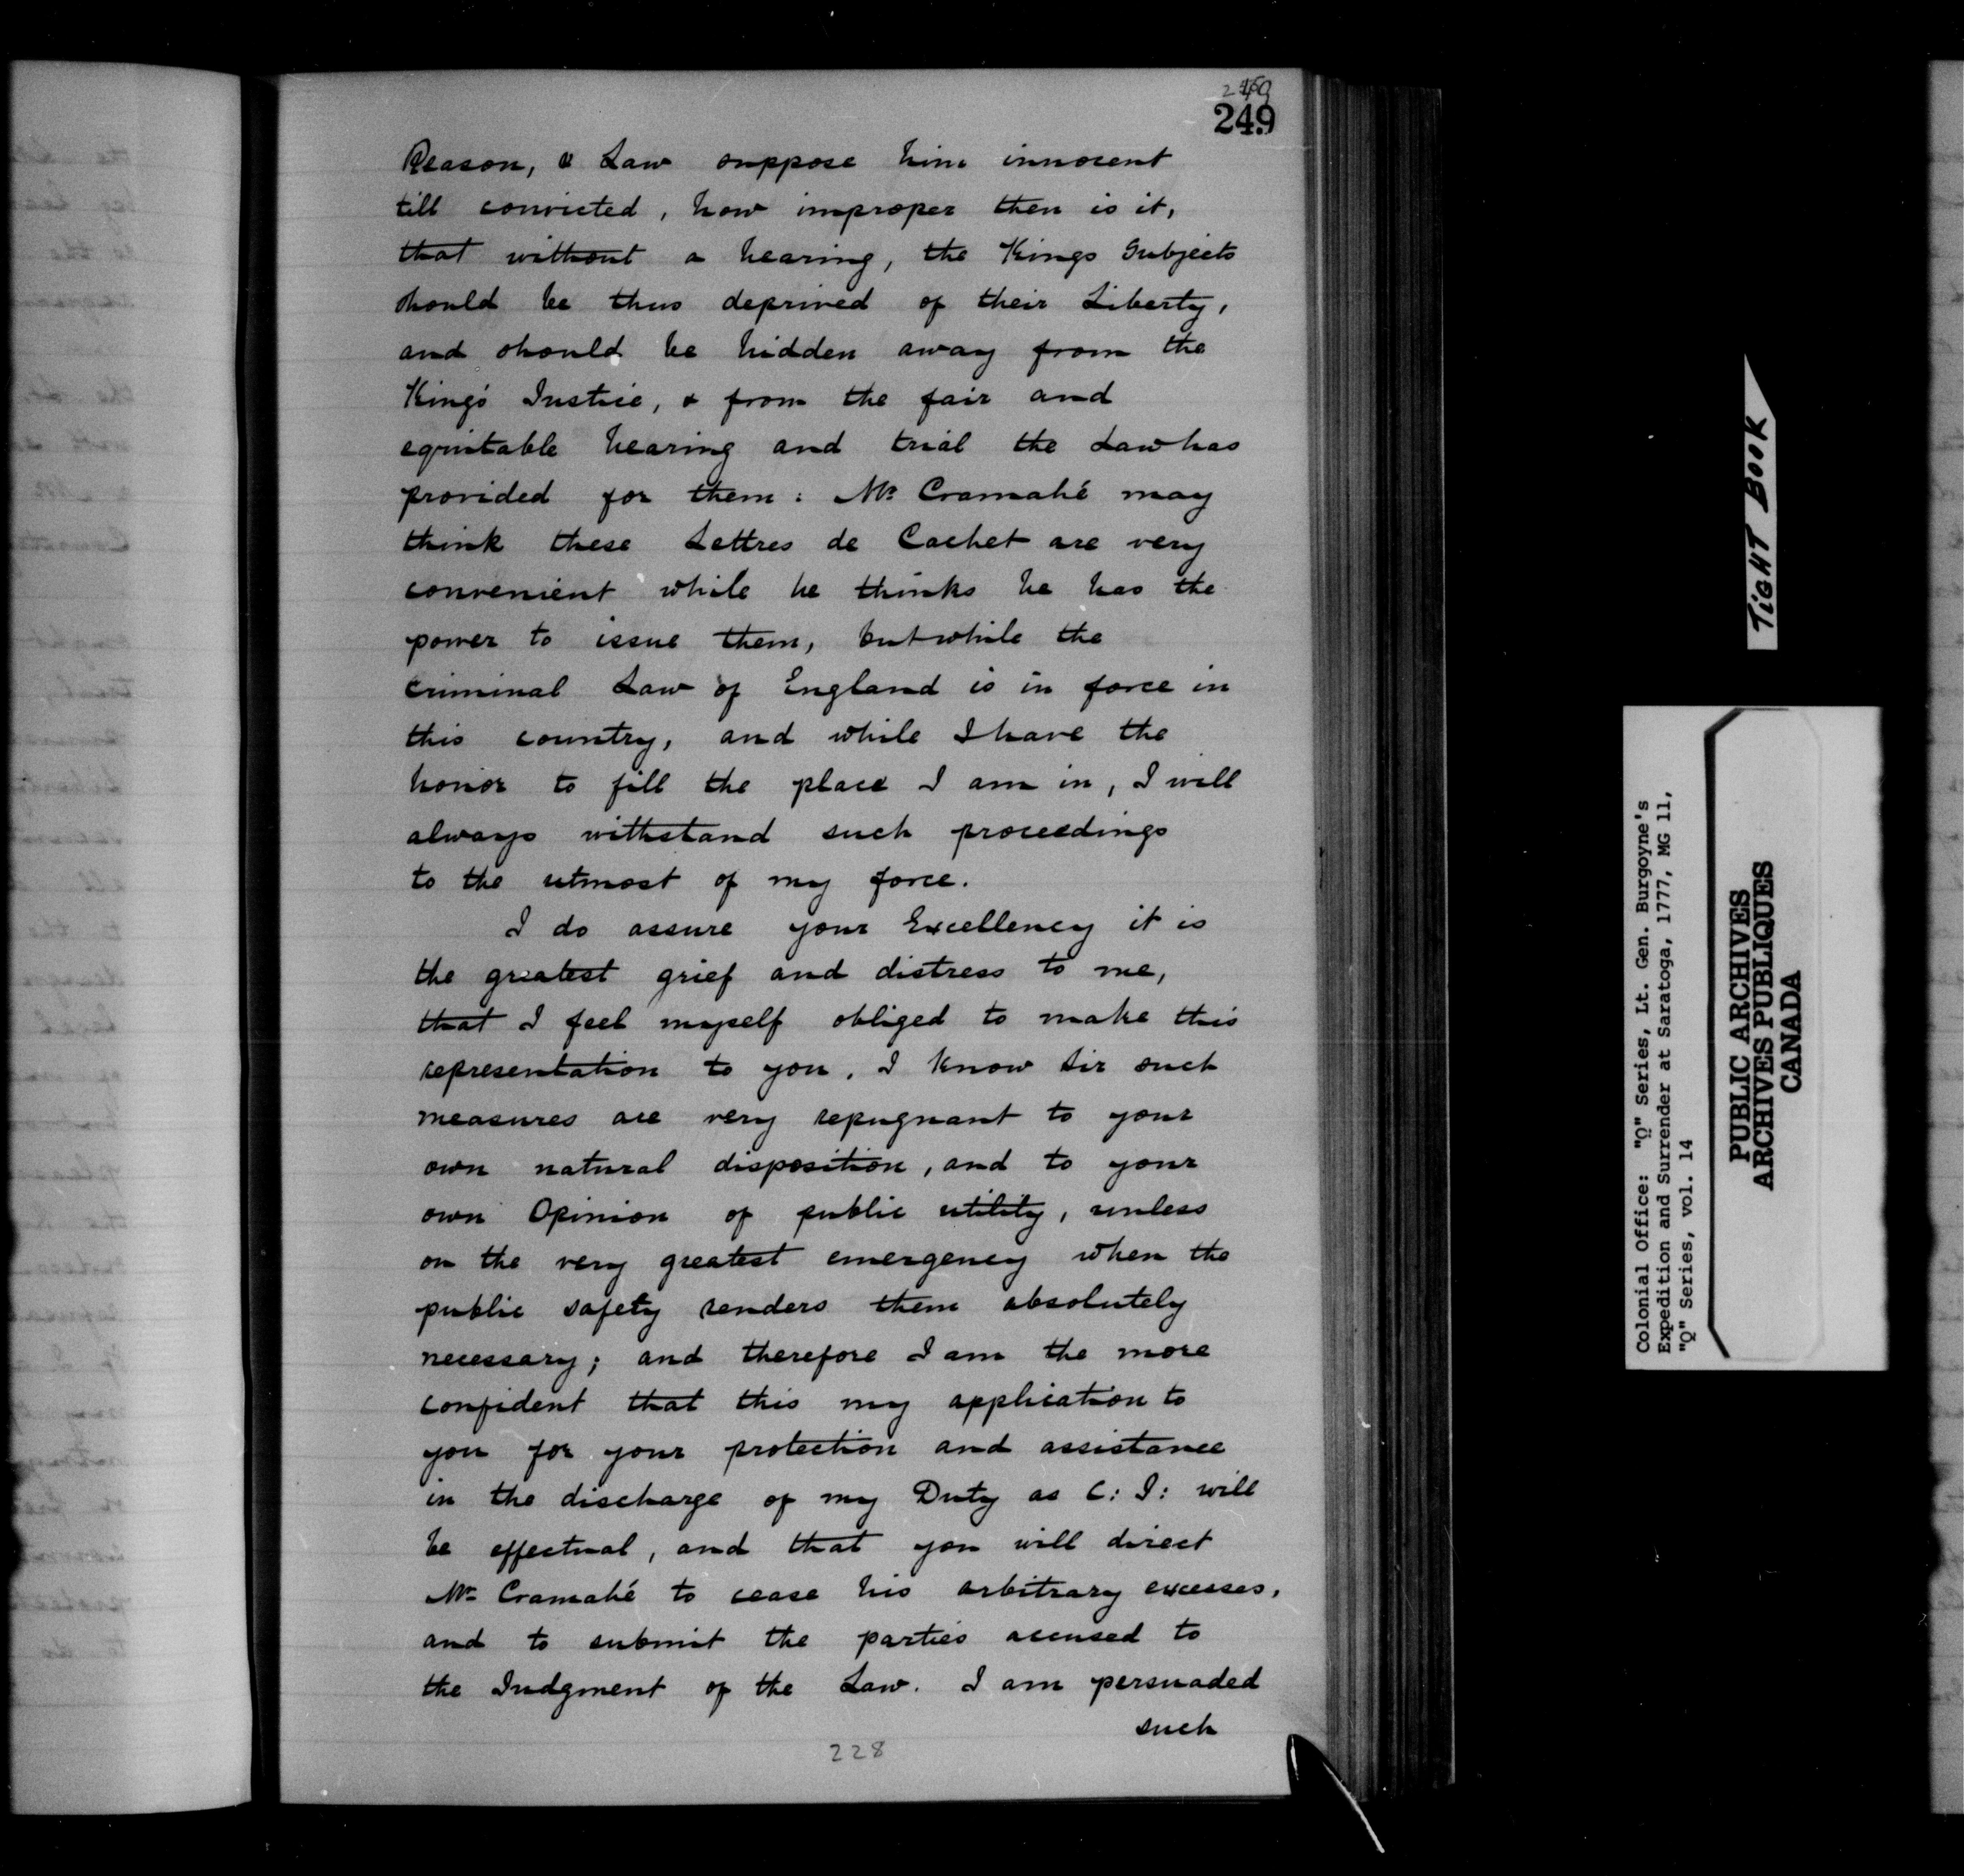 249
Reason, & Law suppose him innocent
till convicted, how improper then is it,
that without a hearing, the Kings Subjects
should be thus deprived of their Liberty,
and should be hidden away from the
King's Justice, & from the fair and
equitable hearing and trial the Law has
provided for them: Mr Cramahé may
think these Lettres de Cachet are very
convenient while he thinks he has the
power to issue them, but while the
criminal Law of England is in force in
this country, and while I have the
honor to fill the place I am in, I will
always withstand such proceedings
to the utmost of my force.
I do assure your Excellency it is
the greatest grief and distress to me,
that I feel myself obliged to make this
representation to you. I know Sir such
measures are very repugnant to your
own natural disposition, and to your
own Opinion of public utility, unless
on the very greatest emergency when the
public safety renders them absolutely
necessary; and therefore I am the more
confident that this my application to
you for your protection and assistance
in the discharge of my Duty as C: J: will
be effectual, and that you will direct
Mr Cramahé to cease his arbitrary excesses,
and to submit the parties accused to
the Judgment of the Law. I am persuaded
such
228
TIGHT BOOK
Colonial Office: "Q" Series, Lt. Gen. Burgoyne's
Expedition and Surrender at Saratoga, 1777, MG 11,
"Q" Series, vol. 14
PUBLIC ARCHIVES
ARCHIVES PUBLIQUES
CANADA